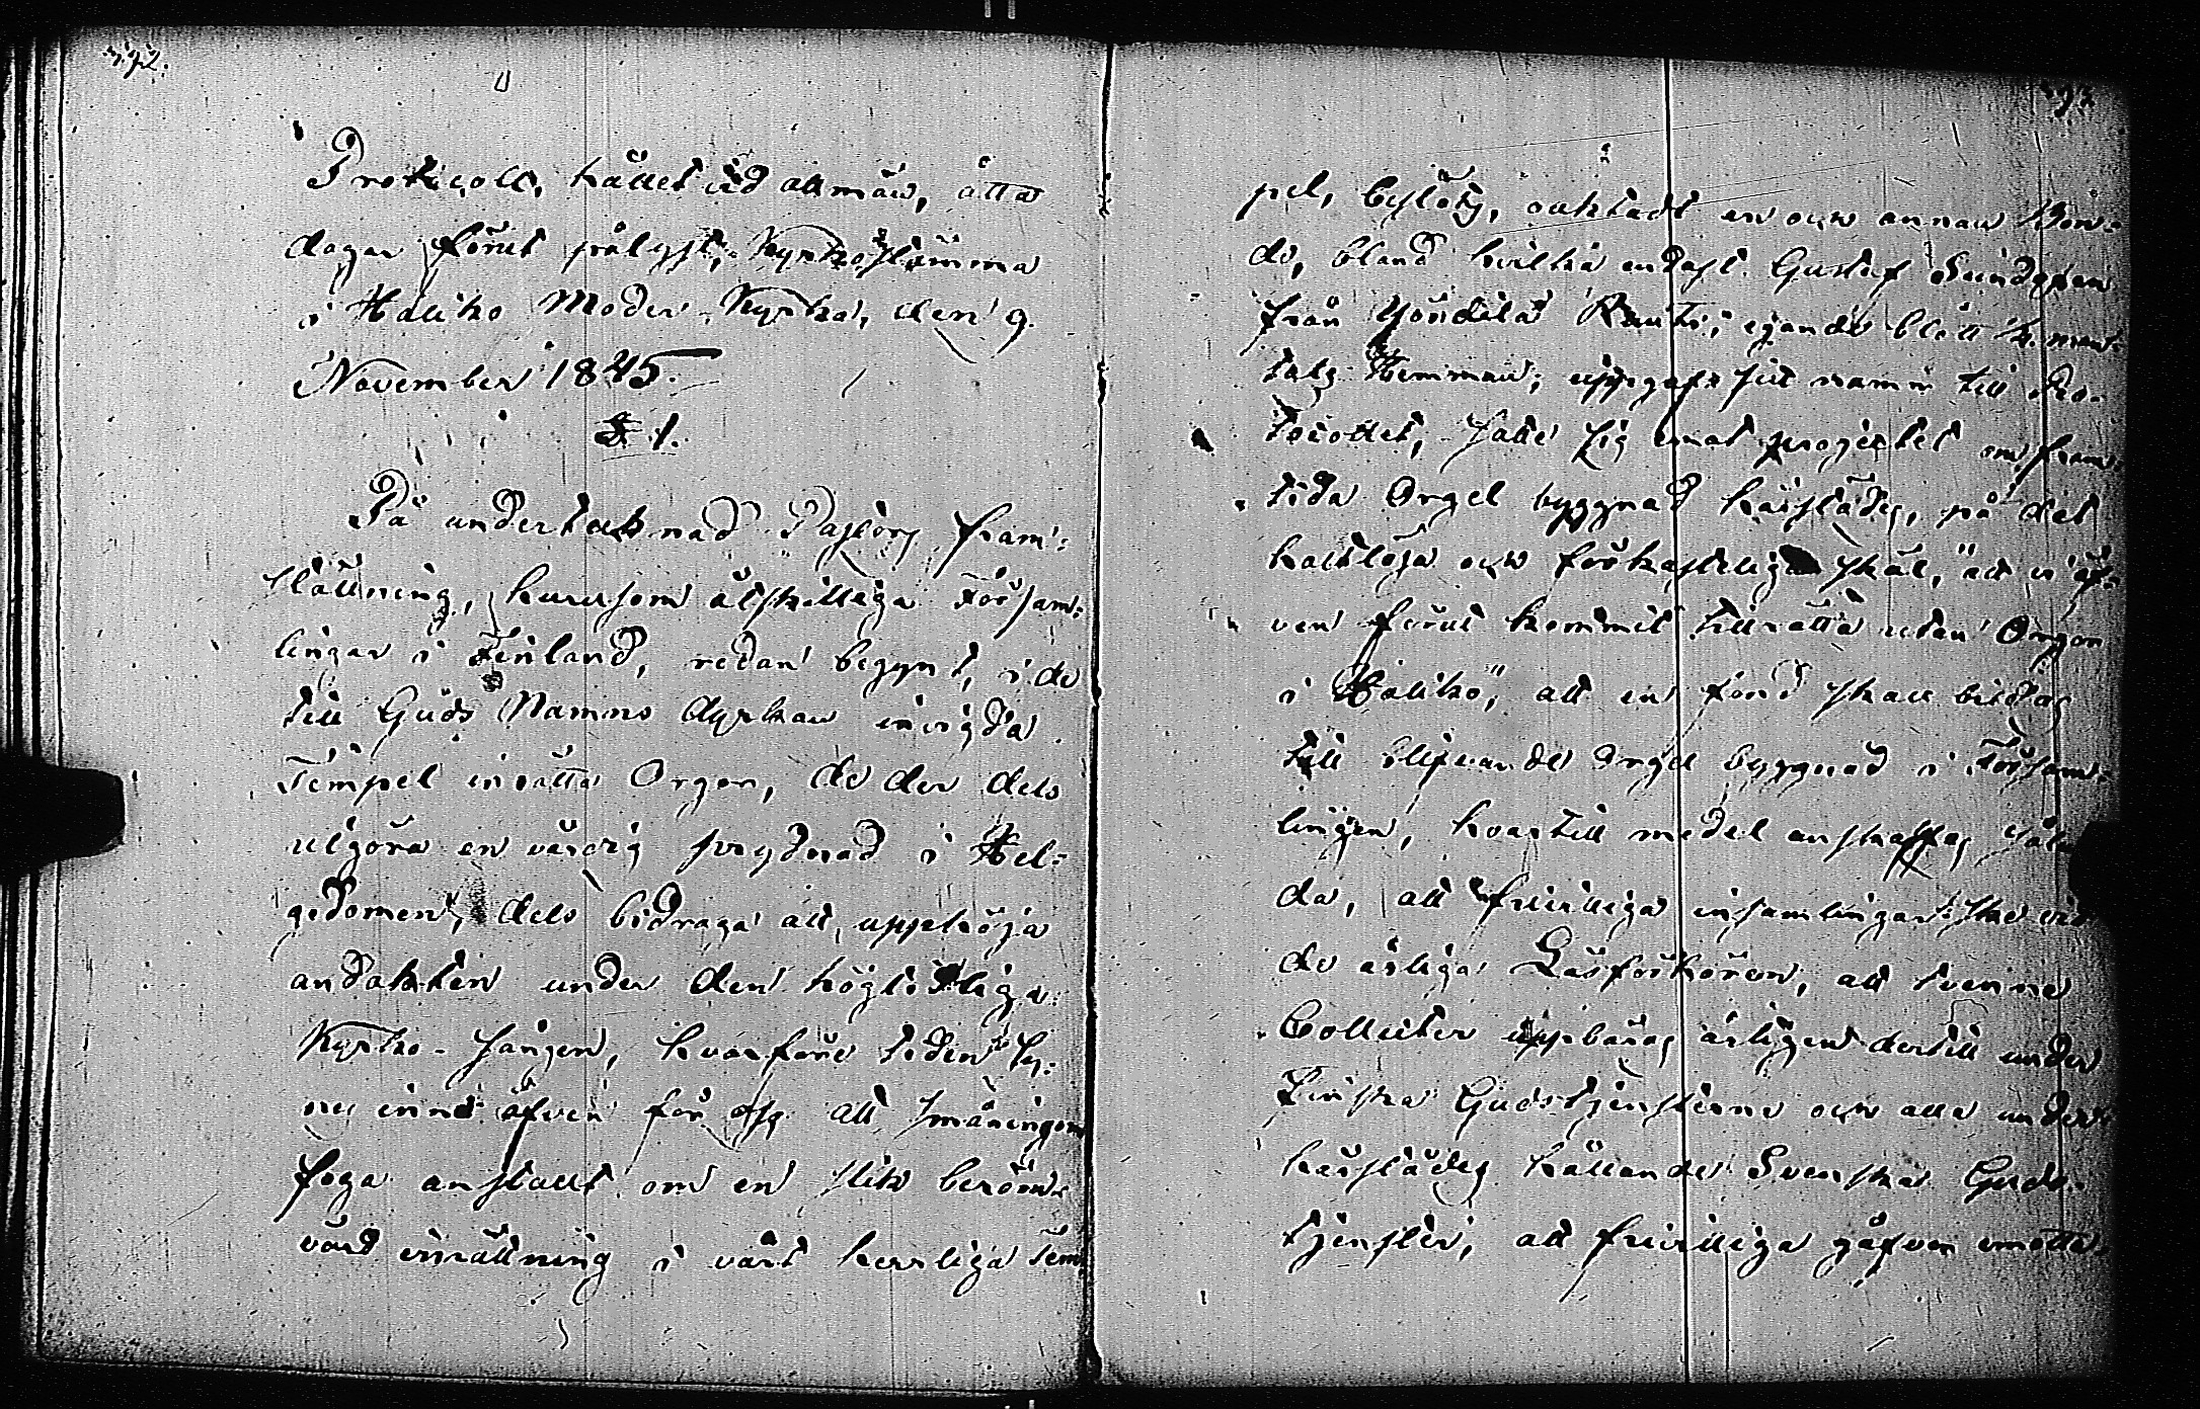 Protocoll, hållet vid allmän, åtta
dagar förut pålyst, Kyrkostämma
i Haliko Moder-Kyrka, den 9.
November 1845.
§ 1.
På undertecknad Pastors fram-
ställning, hurusom åtskilliga Försam-
lingar i Finland, redan begynt, i de
till Guds Namns dyrkan invigda
Tempel inrätta Orgor, de der dels
utgöra en värdig prydnad i Hel-
gedomen, dels bidraga att, upphöja
andakten under den högtidtliga
Kyrko-sången, hvarföre tiden sy-
nes inne äfven för oss att småningom
foga anstallt om en slik beröm-
värd inrättning i vårt herrliga Tem-
pel, beslöts, oaktadt en och annan Bon-
de, bland hvilka endast Gustaf
från Rauti, egande blott mant-
tals Hemman, uppgaf sitt namn till Pro-
tocollet, satte sig emot projectet om fram-
tida Orgel byggnad härstädes, på det
haltlösa och förkastliga skäl, "att vi äf-
ven förut kommit tillrätta utan Orgor
i Haliko", att en fond skall bildas
till blifvande Orgel byggnad i Försam-
lingen, hvartill medel anskaffas såle-
des, att frivilliga insamlingar ske vid
de årliga Läsförhören, att tvenne
Collecter uppbäras årligen dertill under
Finska Gudstjensterne och alla under
härstädes hållande Svenska Guds-
tjenster, att frivilliga gåfvor emotta-